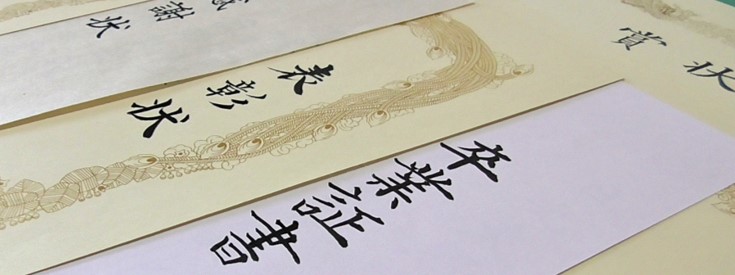 感謝状
表彰状
賞状
卒業証書